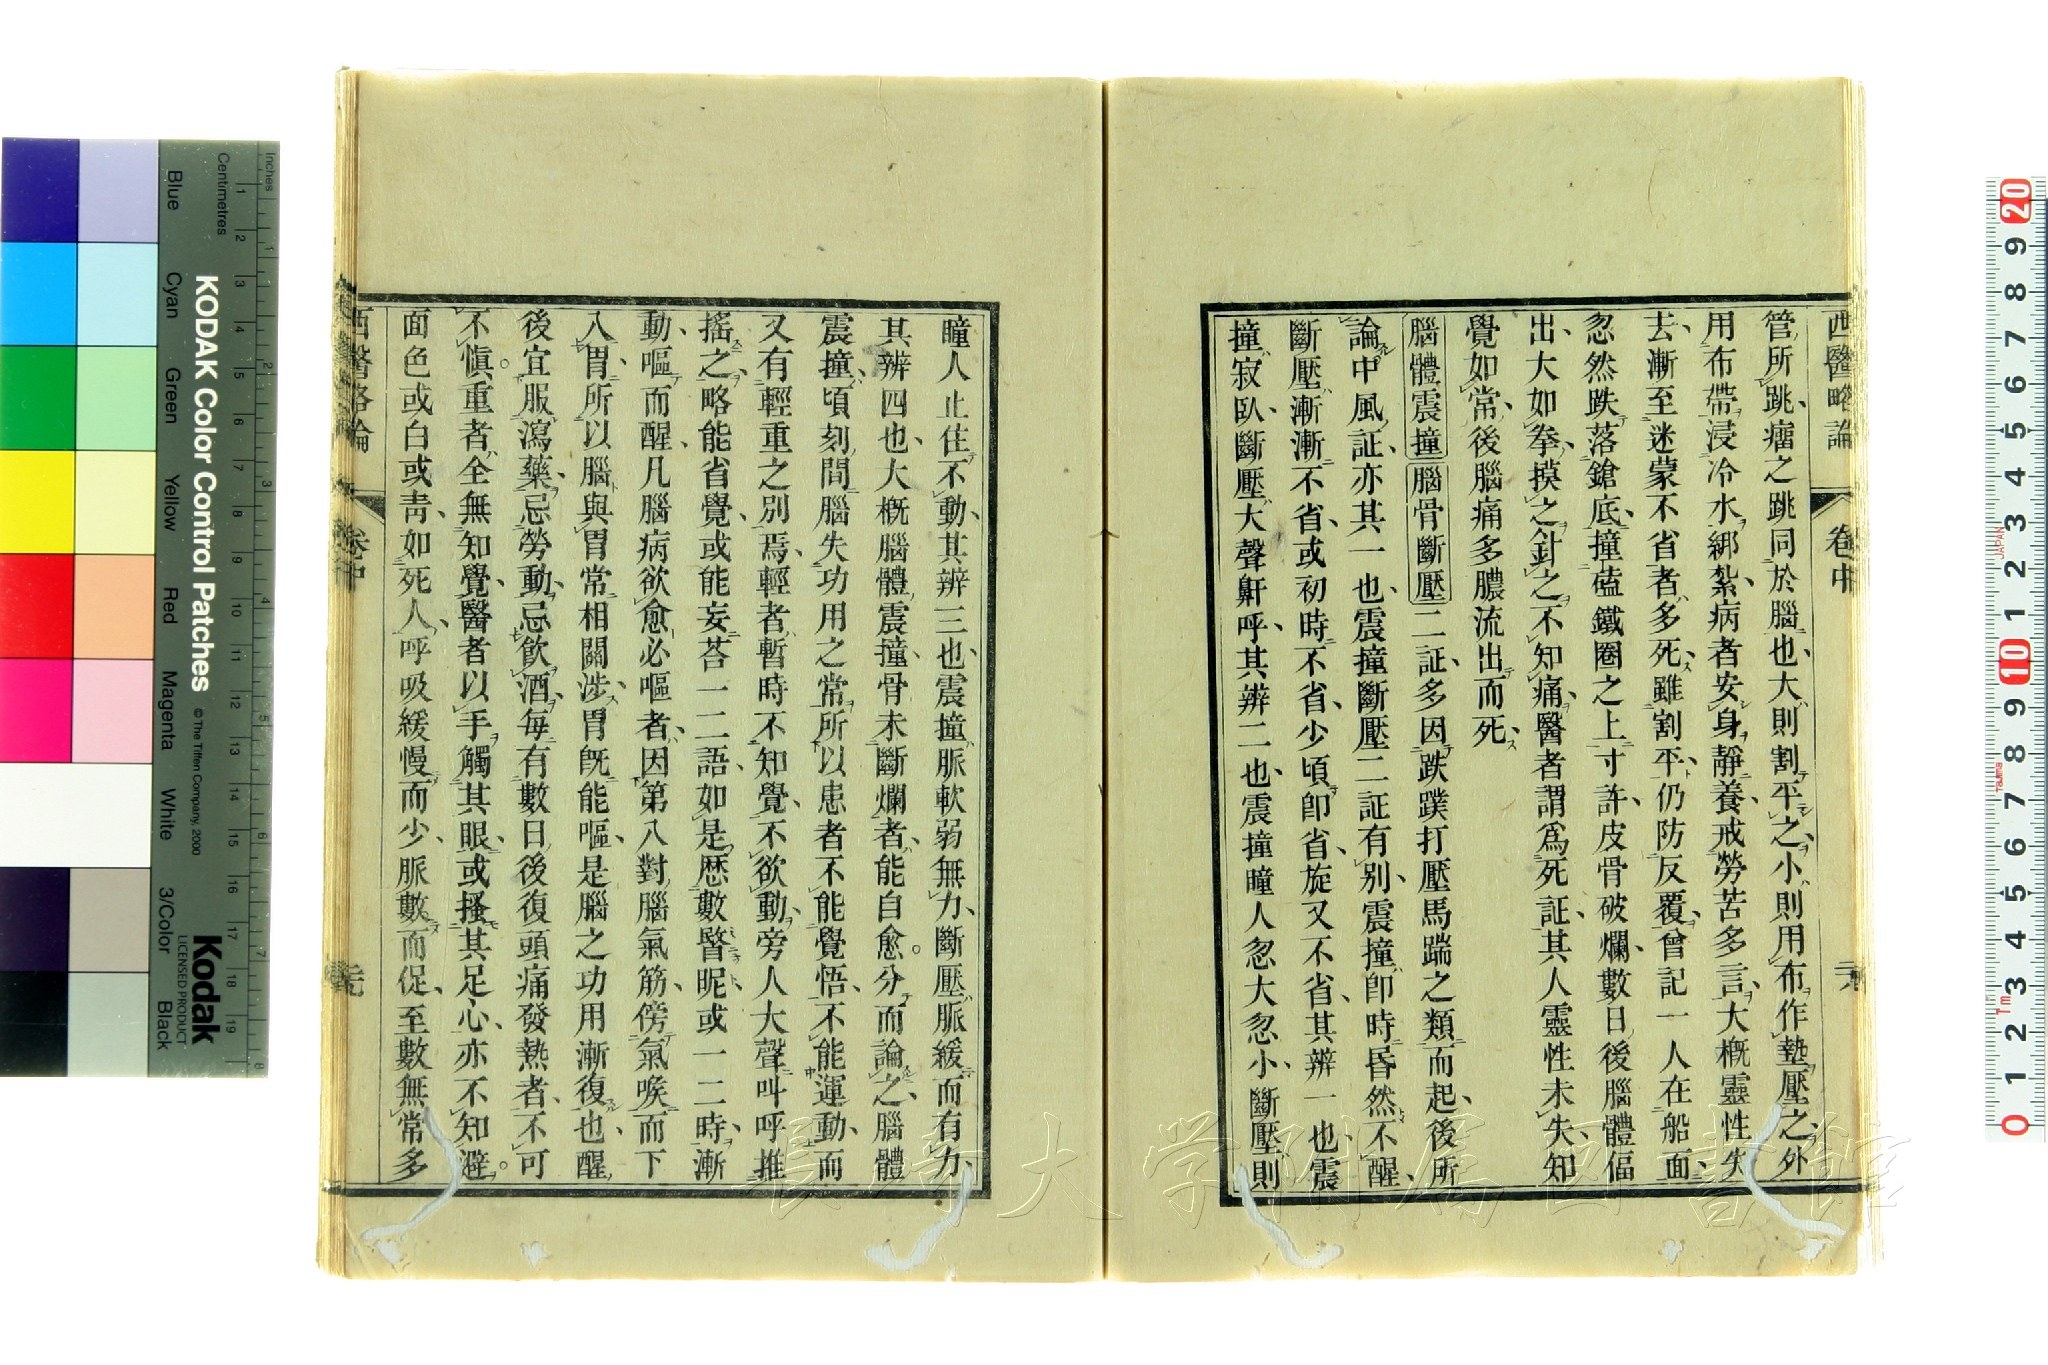 西醫略論
卷中
管所跳瘤之跳同於腦也大則割平之小則用布作墊壓之外
用布帶浸冷水綁紮病者安身靜養戒勞苦多言大概靈性失
去漸至迷蒙不省者多死雖割平仍防反覆曾記一人在船面
忽然跌落鎗底撞磕鐵圈之上寸許皮骨破爛數日後腦體偪
出大如拳摸之針之不知痛醫者謂爲死証其人靈性未失知
覺如常後腦痛多膿流出而死
腦體震撞腦骨斷壓二証多因跌蹼打壓馬踹之類而起後所
論中風証亦其一也震撞斷壓二証有别震撞卽時昏然不醒
斷壓漸漸不省或初時不省少頃卽省旋又不省其辨一也震
撞寂臥斷壓大聲鼾呼其辨二也震撞瞳人忽大忽小斷壓則
瞳人止住不動其辨三也震撞脈軟弱無力斷壓脈緩而有力
其辨四也大概腦體震撞骨未斷爛者能自愈。分而論之腦體
震撞頃刻間腦失功用之常所以患者不能覺悟不能運動而
又有輕重之别焉輕者暫時不知覺不欲動旁人大聲叫呼推
搖之略能省覺或能妄荅一二語如是歷數晷眤或一二時漸
動嘔而醒凡腦病欲愈必嘔者因第八對腦氣筋傍氣喉而下
入胃所以腦與胃常相關涉胃旣能嘔是腦之功用漸復也醒
後宜服瀉藥忌勞動忌飮酒每有數日後復頭痛發熱者不可
不愼。重者全無知覺醫者以手觸其眼或搔其足心亦不知避。
面色或白或靑如死人呼吸緩慢而少脈數而促至數無常多
西醫略論
卷中
長崎大学附属図書館
KODAK Color Control Patches
© The Tiffen Company, 2000
Kodak
LICENSED PRODUCT
Inches
Centimetres
Blue
Cyan
Green
Yellow
Red
Magenta
White
3/Color
Black